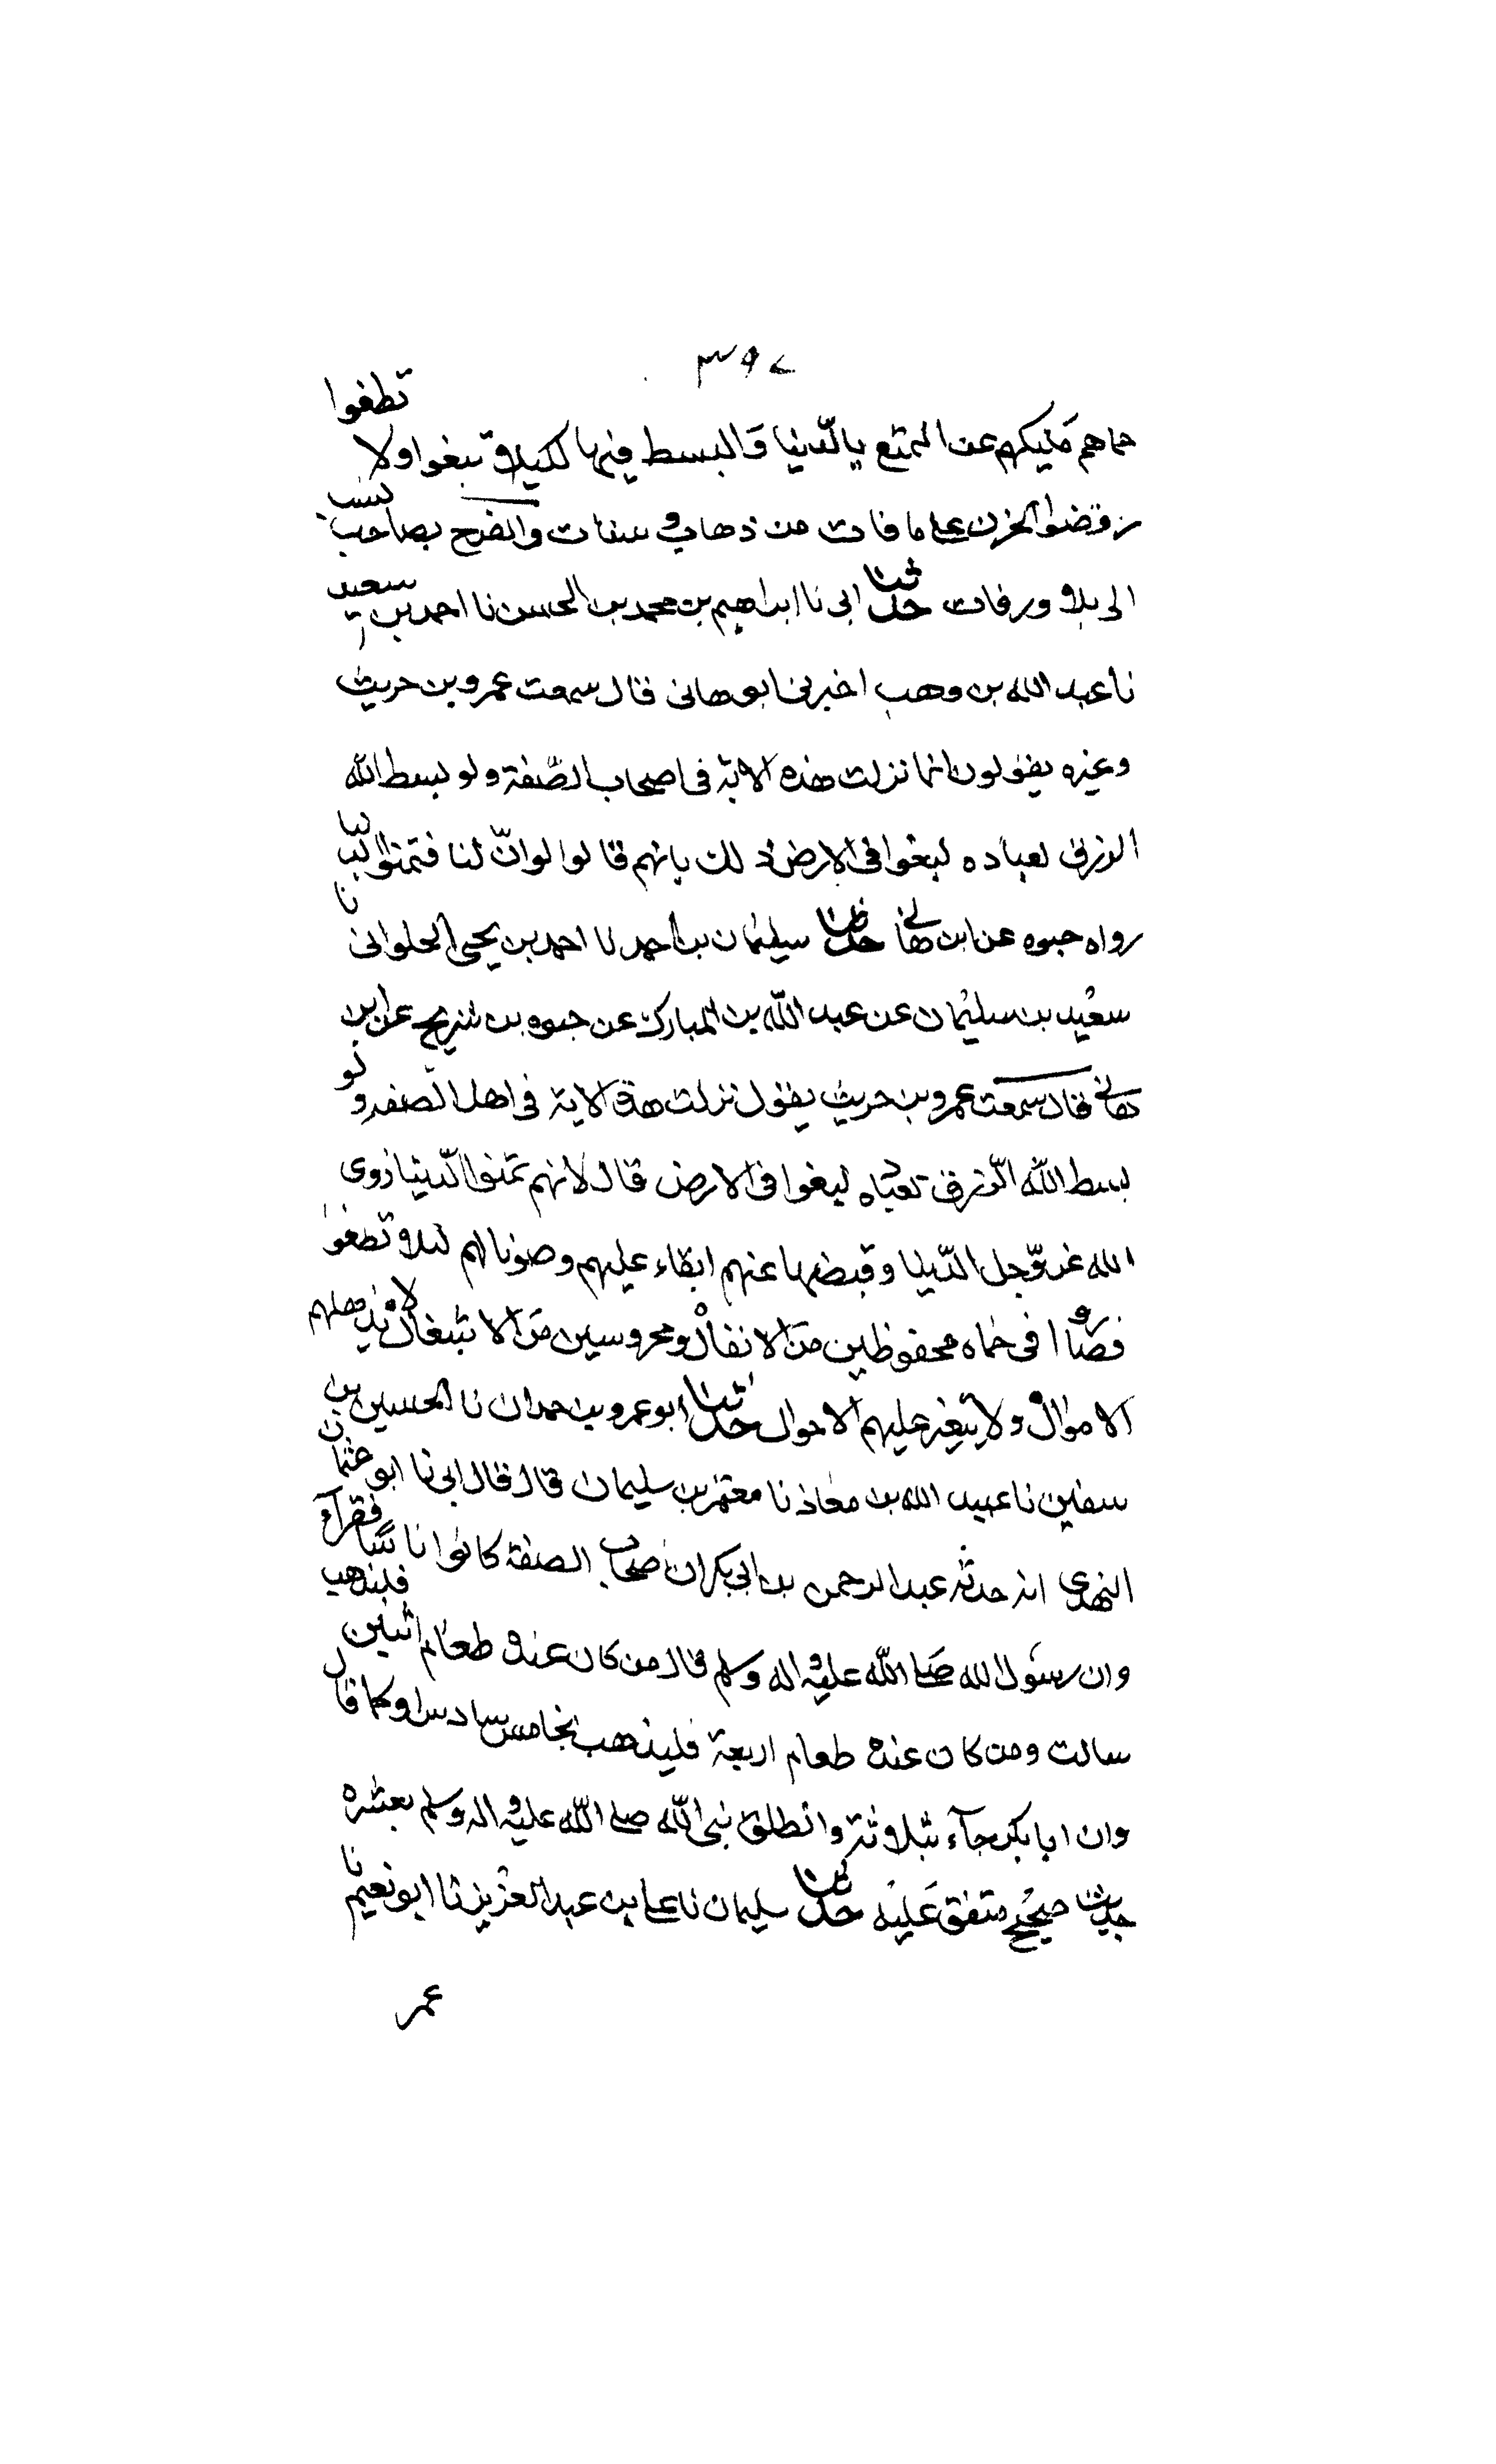 ٣٩٧
حماهم مليكهم عن التمتع بالدنيا والبسط فيها لكيلا تبغوا ولا تطغوا
رفضوا الحزن على ما فات من ذهاب وشتات والفرح بصاحب نسب
الى بلا ورفات حدثنا ابى نا ابراهيم بن محمد بن الحسن نا احمد بن سعيد
نا عبد الله بن وهب اخبرنى ابو هانى قال سمعت عمرو بن حريث
وغيره يقولون انما نزلت هذه الاية فى اصحاب الصفة ولو بسط الله
الرزق لعباده لبغوا فى الارض ذلك بانهم قالوا لو ان لنا فتمنوا الدنيا
رواه حيوه عن ابن هانى حدثنا سليمان بن احمد نا احمد بن يحيى الحلوانى نا
سعيد بن سليمان عن عبد الله بن المبارك عن حيوه بن شريح عن ابن
هانى قال سمعت عمرو بن حريث يقول نزلت هذه الاية فى اهل الصفه ولو
بسط الله الرزق لعباده لبغوا فى الارض قال لانهم تمنوا الدنيا زوى
الله عز وجل الدنيا وقبضها عنهم ابقاء عليهم وصونا لهم لئلا تطغوا
فصاروا فى حماه محفوظين من الانفال ومحروسين من الاشتغال لا
الاموال ولا يتغير عليهم الاحوال حدثنا ابو عمرو بن حمدان نا الحسين بن
سفين نا عبيد الله بن معاذ نا معتمر بن سليمان قال قال ابى نا ابو عثمان
النهدى انه حدثه عبد الرحمن بن ابى بكر ان اصحاب الصفة كانوا ناسا فقرآء
وان رسول الله صلى الله عليه واله وسلم قال من كان عنده طعام اثنين فليذهب
سالت ومن كان عنده طعام اربعة فليذهب بخامس سادس او كما قال
وان ابا بكر جآء بثلاثة وانطلق نبى الله صلى الله عليه واله وسلم بعشره
حديث صحيح متفق عليه حدثنا سليمان نا على بن عبد العزيز نا ابو نعيم نا
عمر